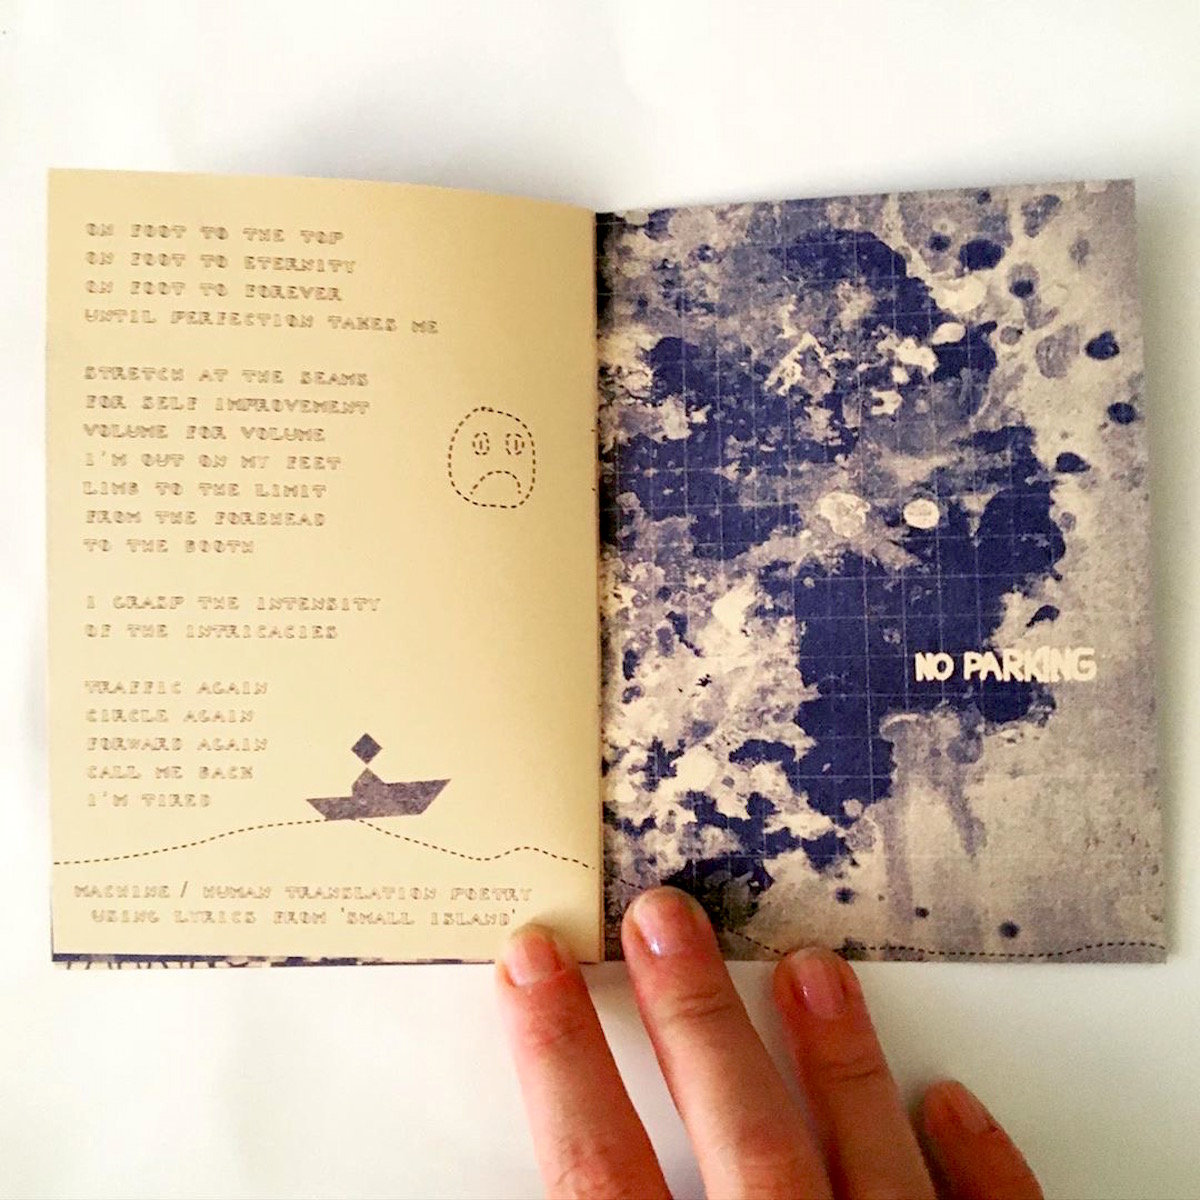 ON FOOT TO THE TOP
ON FOOT TO ETERNITY
ON FOOT TO FOREVER
UNTIL PERFECTION TAKES ME
STRETCH AT THE SEAMS
FOR SELF IMPROVEMENT
VOLUME FOR VOLUME
I'M OUT ON MY FEET
LIMB TO THE LIMIT
FROM THE FOREHEAD
TO THE BOOTH
I GRASP THE INTENSITY
OF THE INTRICACIES
TRAFFIC AGAIN
CIRCLE AGAIN
FORWARD AGAIN
CALL ME BACK
I'M TIRED
MACHINE / HUMAN TRANSLATION POETRY
USING LYRICS FROM 'SMALL ISLAND'
NO PARKING